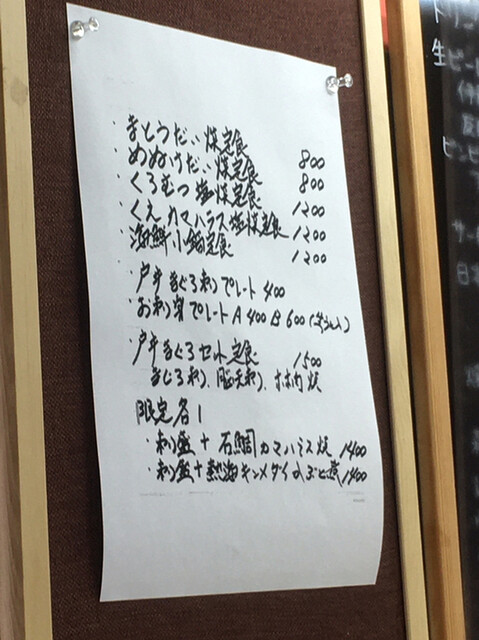 ・まとうだい焼定食 800
・めぬけだい焼定食 800
・くろむつ塩焼定食 1200
・くえカマハラス塩焼定食 1200
・海鮮小鍋定食 1200
・戸井まぐろ刺プレート400
・お刺身プレートA400 B600
・戸井まぐろセット定食 1500
まぐろ刺、脳天刺、ホホ肉焼
限定各1
・刺盛+石鯛カマハラス焼 1400
・刺盛+熱海キンメダイ 煮 1400
生ビー